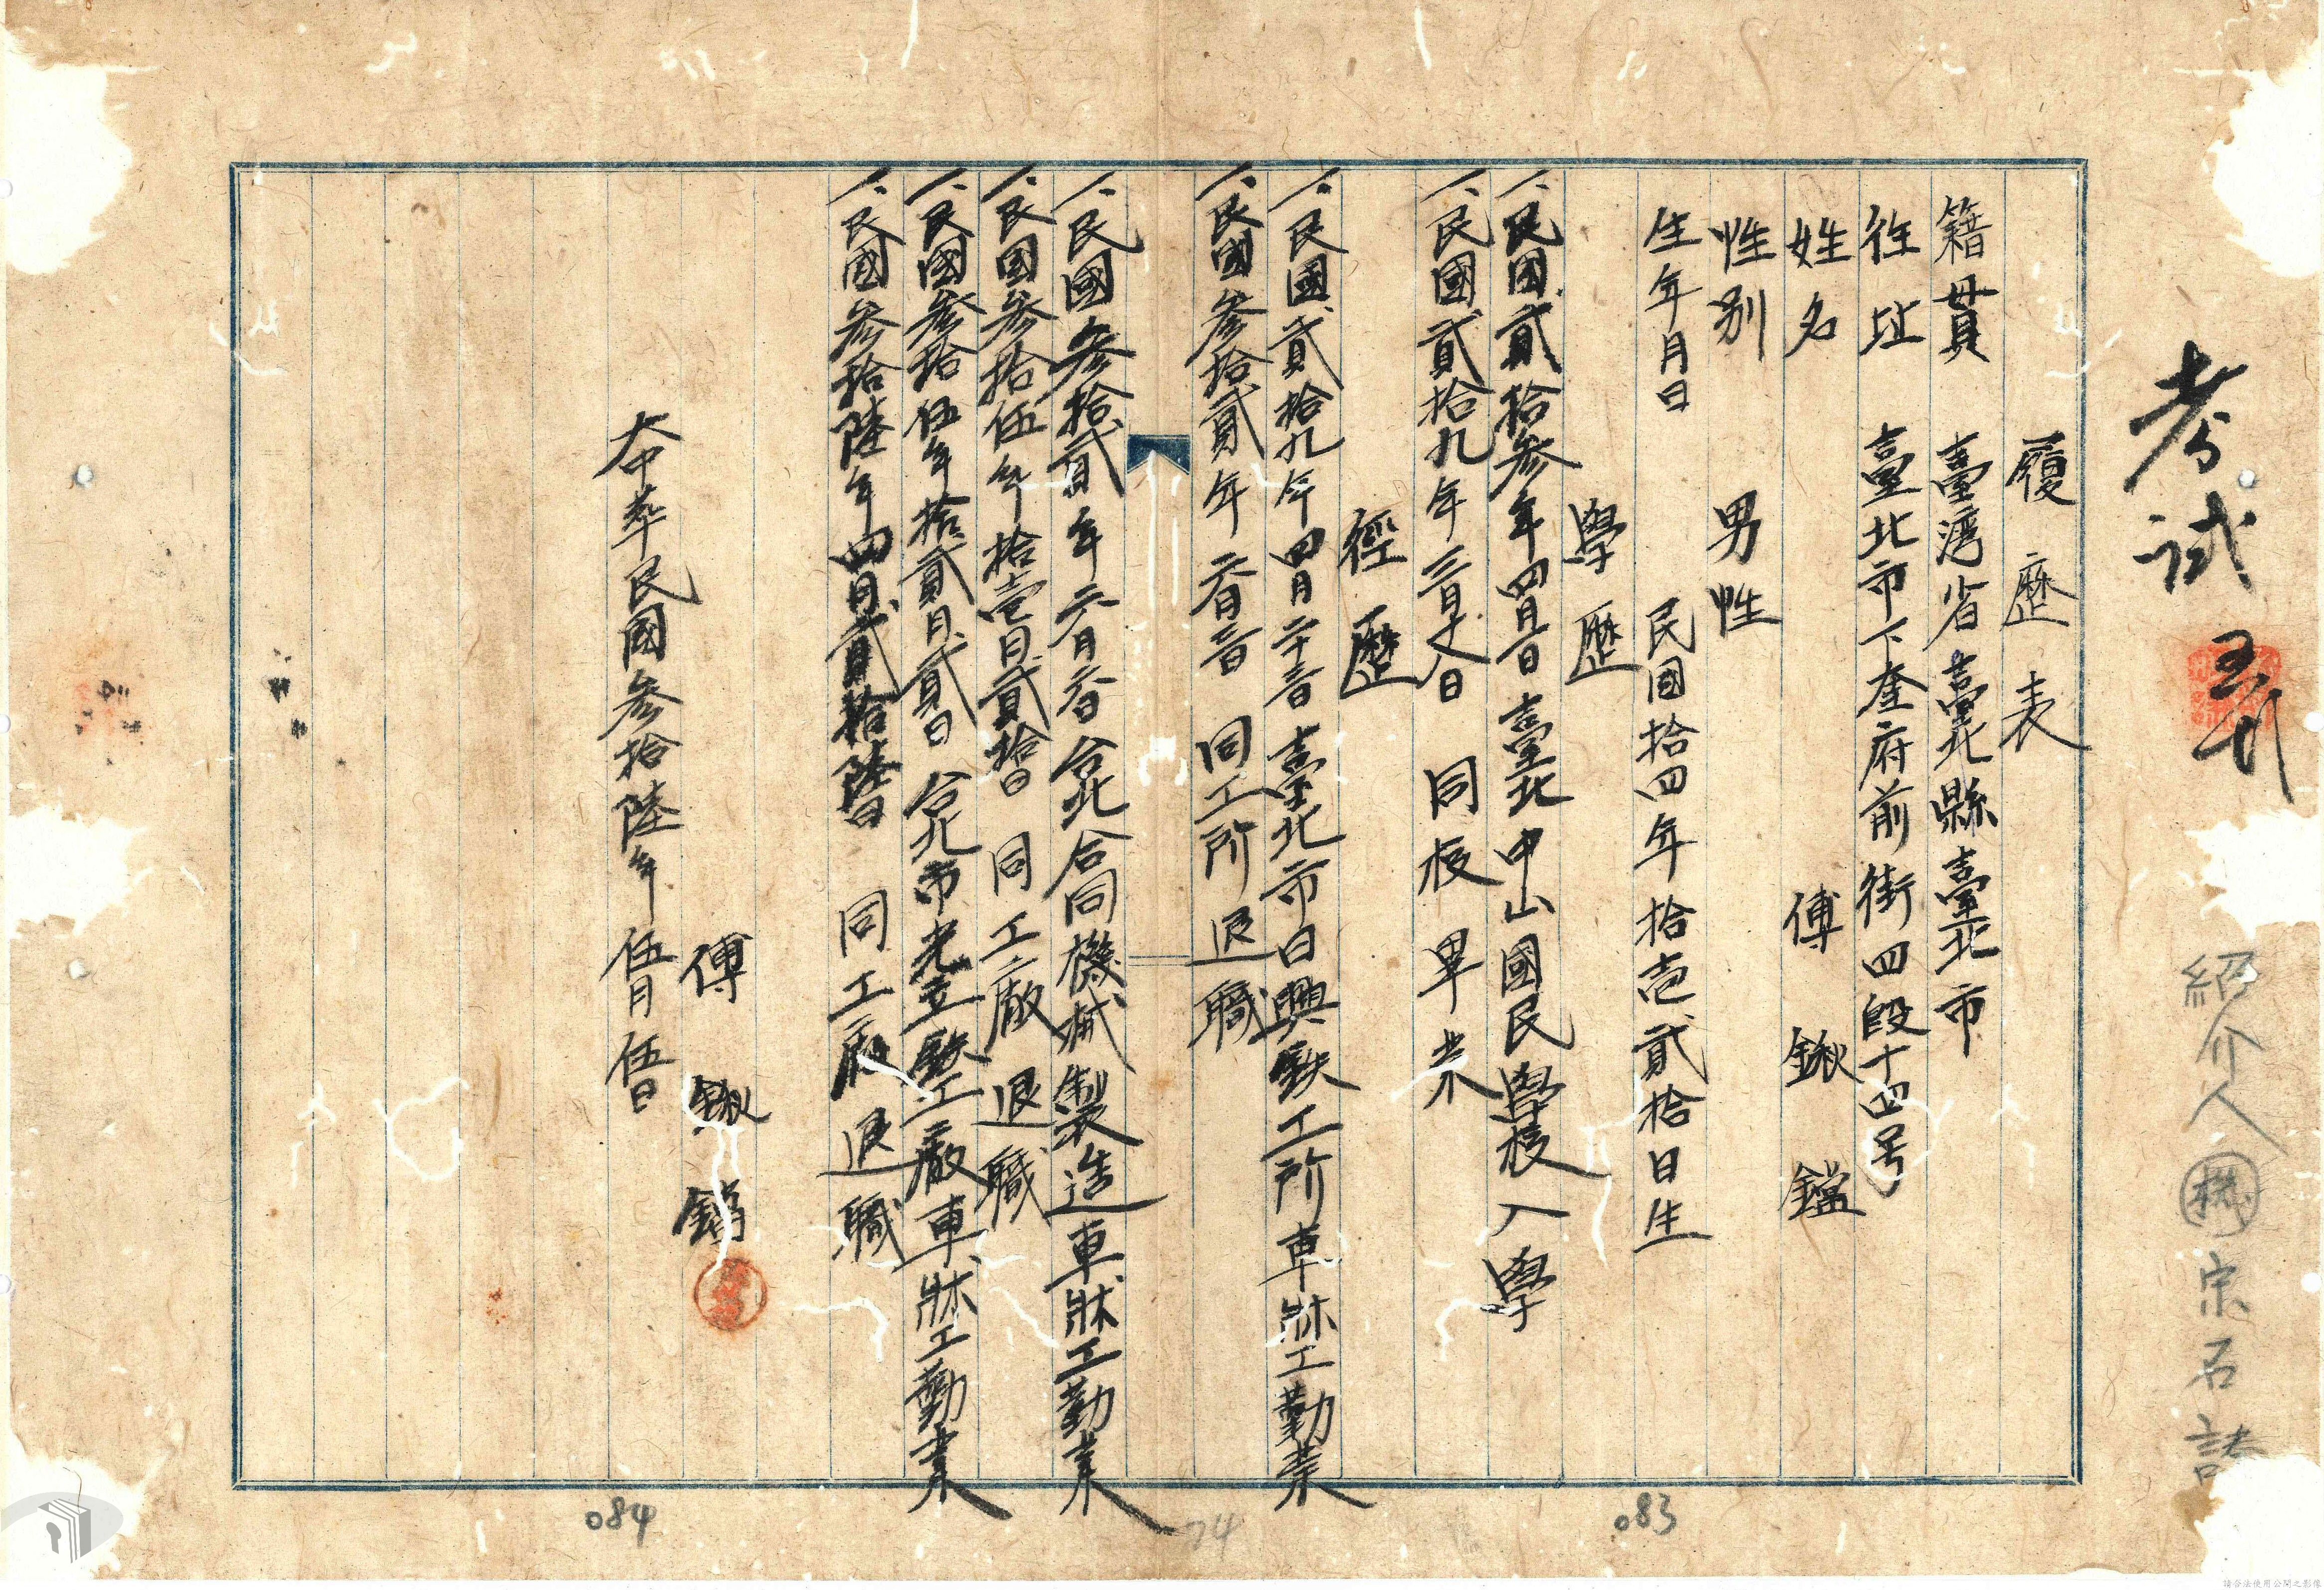 考試
紹介人 宗石諸
履歷表
籍貫 臺灣省臺北縣臺北市
住址 臺北市下奎府前街四段十四号
姓名 傅鍬鐺
性別 男性
生年月日 民国拾四年拾壱貳拾日生
學歷
一、民國貳拾参年四月一日 臺北中山國民學校入學
一、民國貳拾九年三月 日 同校畢業
經歷
一、民國貳拾九年四月二十 日 臺北市日興鉄工所車牀工勤業
一、民國参拾貳年 月 日 同工所退職
一、民國参拾貳年 月 日 台北合同機械製造車牀工勤業
一、民国参拾伍年拾壱月貳拾日 同工廠退職
一、民國参拾伍年拾貳月貳日 台北市光立鉄工廠車牀工勤業
一、民國参拾陸年四月貳拾陸日 同工廠退職
傅鍬鐺
大中華民國参拾陸年伍月伍日
083
74
084
請合法使用公開之影像